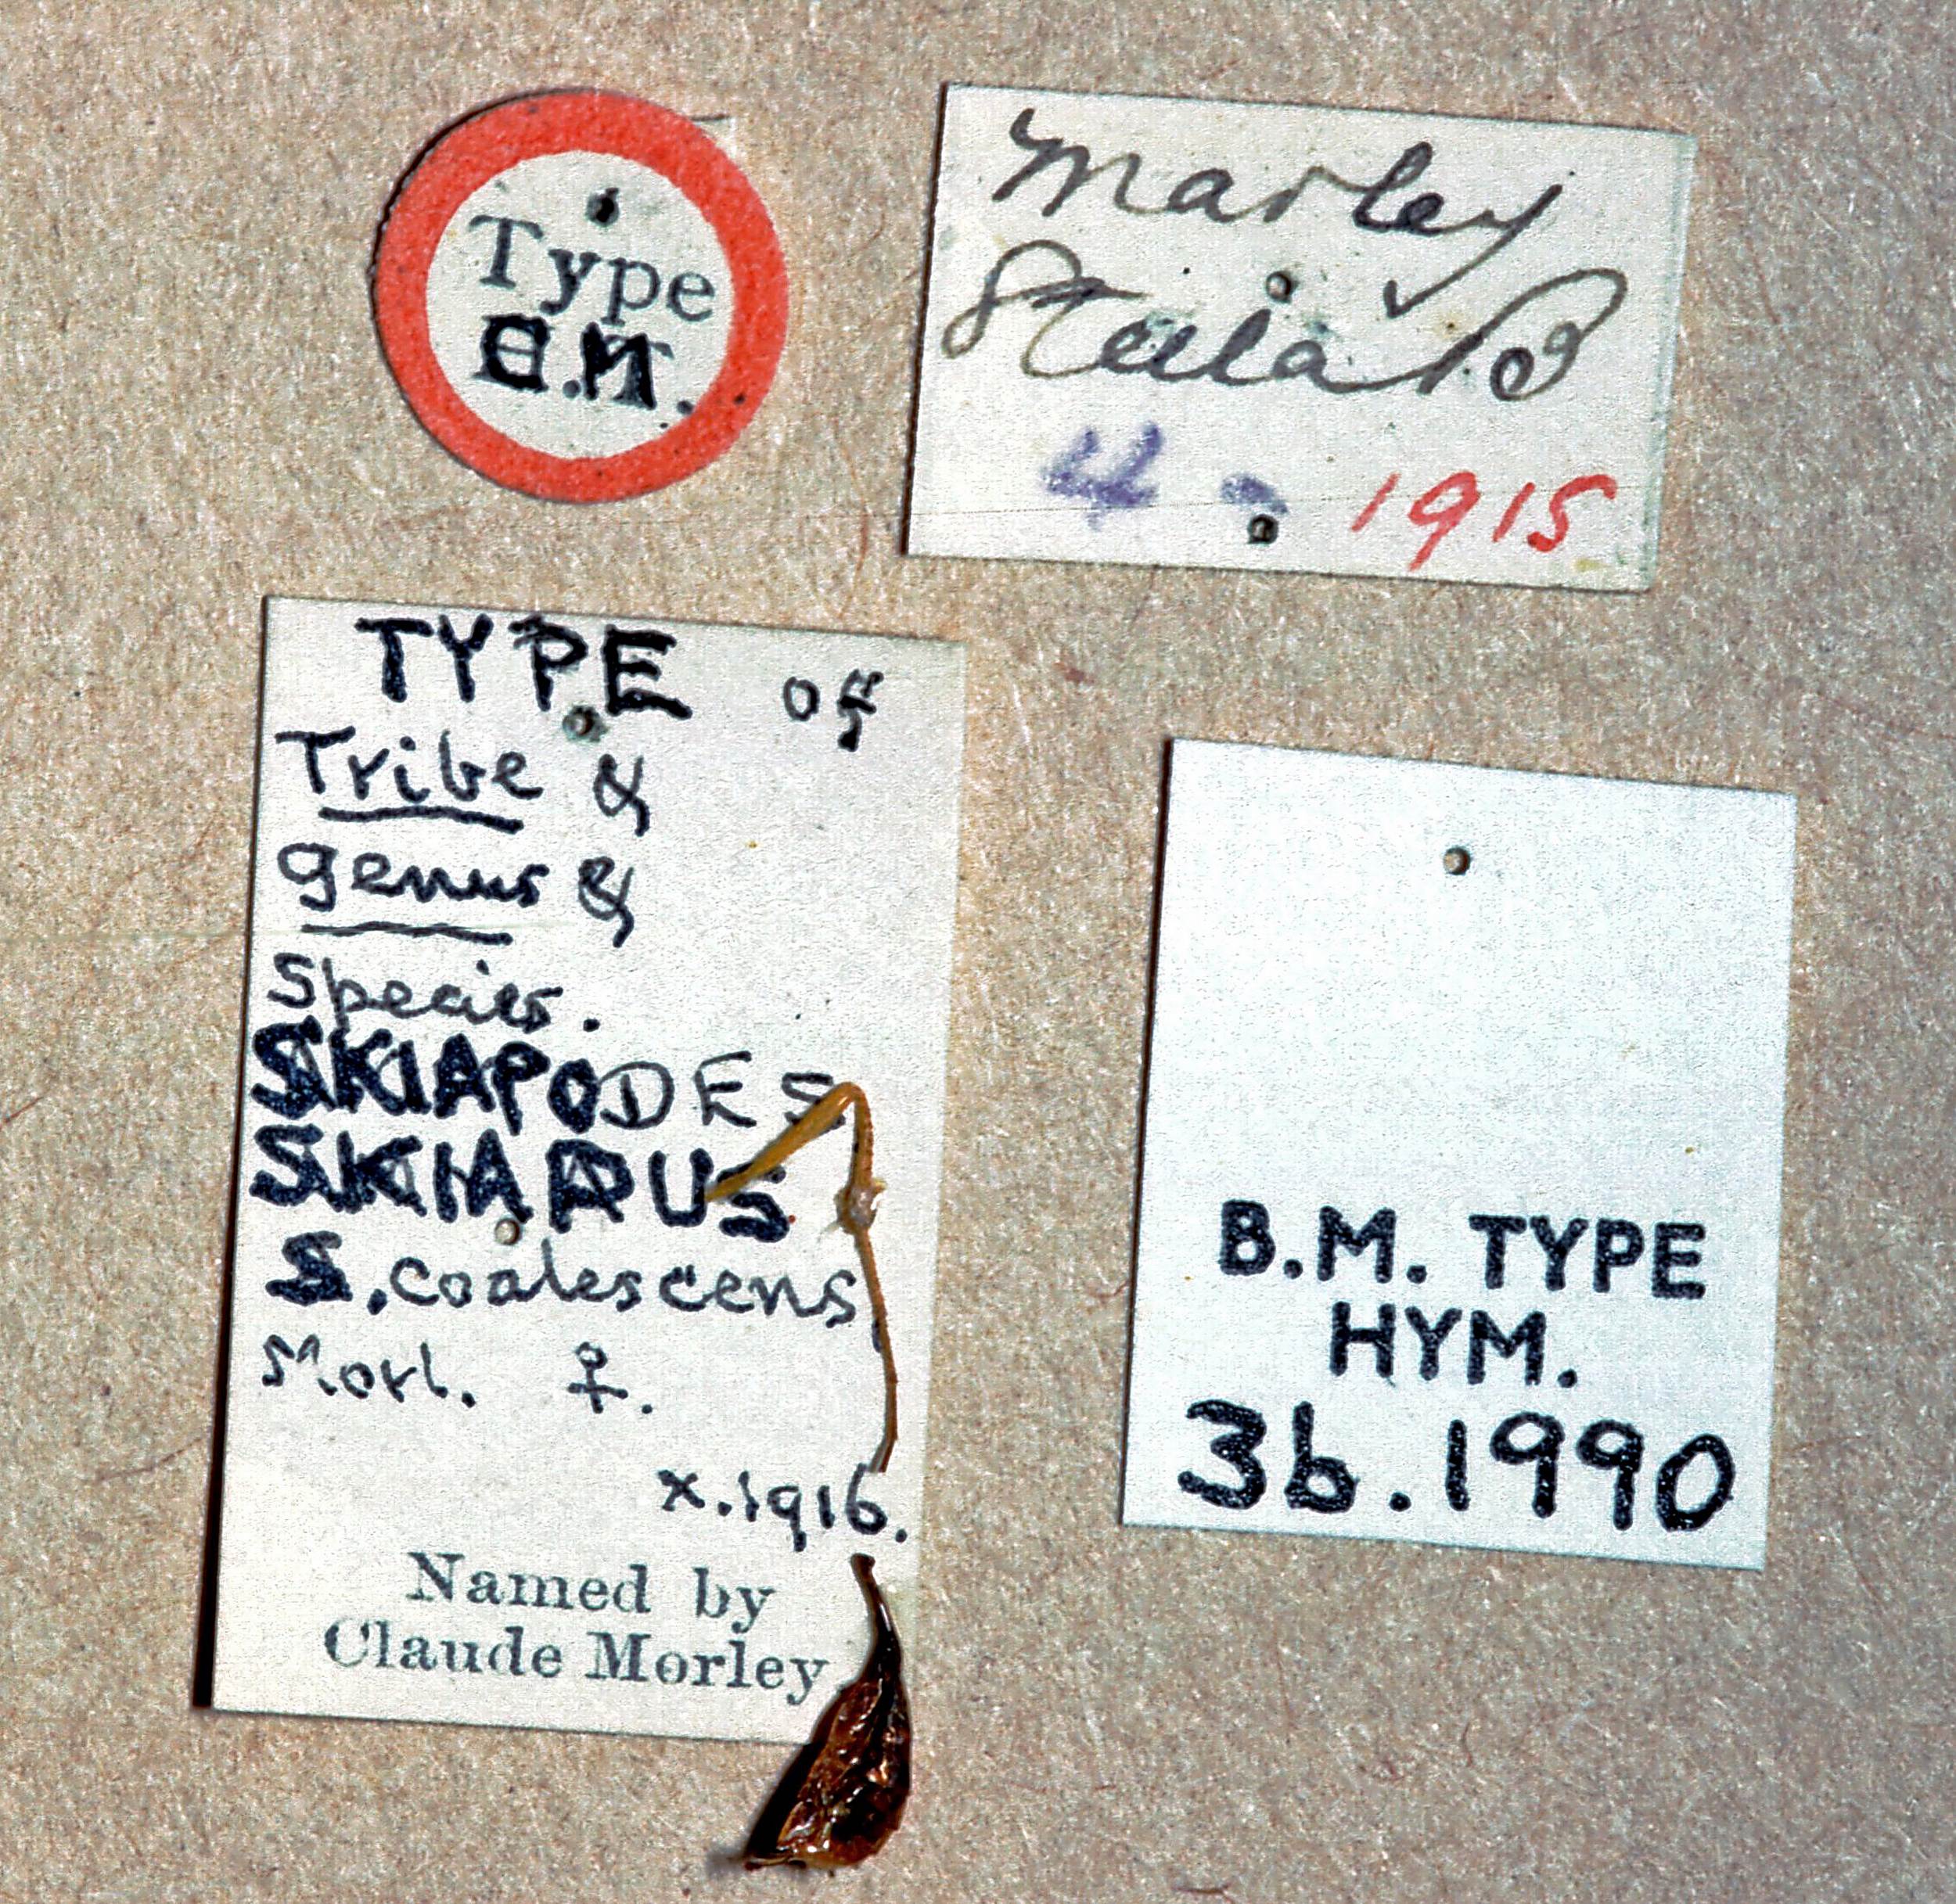 Type
B.M.
Marley
Stella B
4 - 1915
TYPE of
Tribe &
genus &
Species.
SKIAPODES
SKIAPUS
S. coalescens
Morl. ♀.
x.1916.
Named by
Claude Morley
B.M. TYPE
HYM.
3b.1990